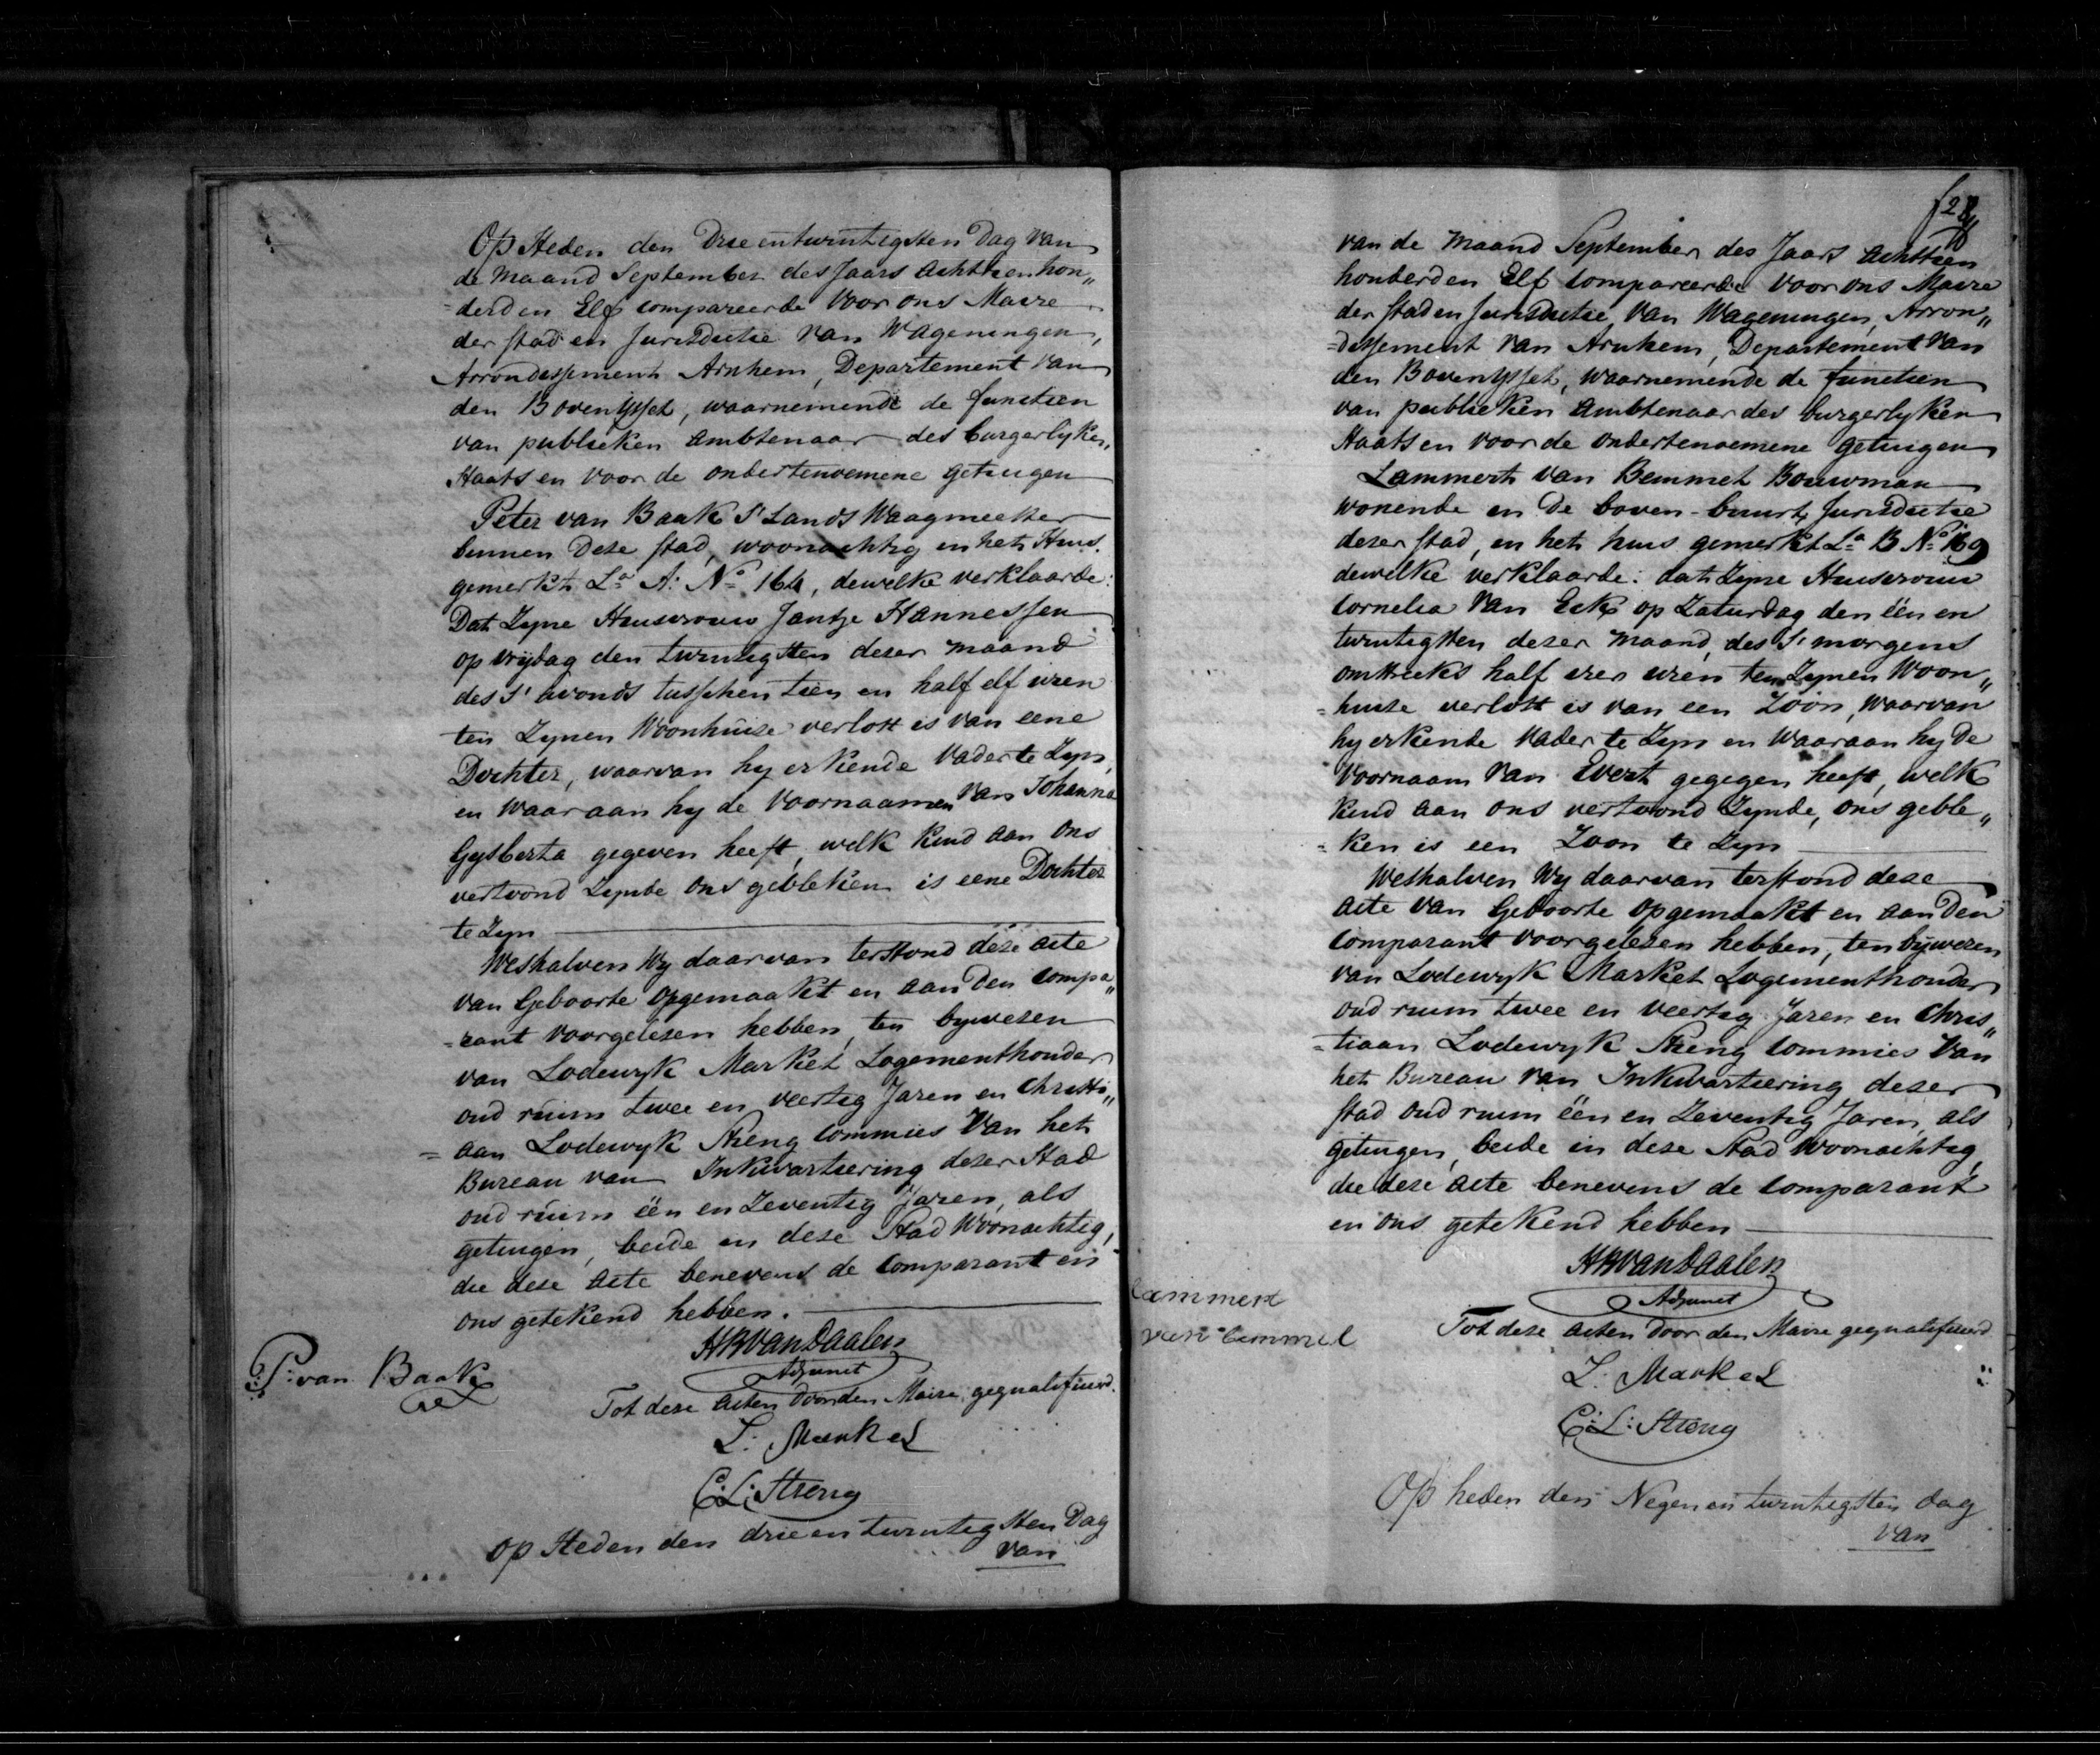 Op Heden den Drie en twintigsten Dag van
de Maand September des Jaars Achttien hon„
=derd en Elf compareerde voor ons Maire
der stad en Jurisdictie van Wageningen,
Arrondissement Arnhem, Departement van
den Boven Yssel, waarnemende de functien
van publieken Ambtenaar des burgerlyken
Staats en voor de ondertenoemene getuigen
Peter van Baak S' Lands Waagmeester
binnen Deze stad, woonachtig in het Huis.
gemerkt La A: No 164, dewelke verklaarde:
Dat Zyne Huisvrouw Jantje Hannessen
op vrijdag den twintigsten dezer maand
des S' avonds tusschen tien en half elf uren
ten Zynen Woonhuize verlost is van eene
Dochter, waarvan hy erkende Vader te Zyn,
en waaraan hy de Voornaamen van Johanna
Gysberta gegeven heeft, welk kind aan ons
vertoond Zynde ons gebleken is eene Dochter
te Zyn
Weshalven Wy daarvan terstond deze Acte
van Geboorte opgemaakt en aan Den Compa„
=rant voorgelezen hebben, ten bywezen
van Lodewyk Markel Logementhouder
oud ruim twee en veertig Jaren en Christi„
= aan Lodewyk Streng Commies van het
Bureau van Inkwartiering dezer Stad
oud ruim één en Zeventig Jaren, als
getuigen, beide in deze Stad Woonachtig,
die deze Acte benevens de Comparant en
ons getekend hebben.
HRvanDaalen
Adjunct
P: van Baak
Tot deze Acten door den Maire gequalificeerd.
L: Markel
C: L: Streng
Op Heden den drie en twintigsten Dag
van
f 28
van de Maand September des Jaars Achttien
honderd en Elf compareerde voor ons Maire
der stad en Jurisdictie van Wageningen, Arron„
=dissement van Arnhem, Departement van
den Boven Yssel, waarnemende de functien
van publieken Ambtenaar des burgerlyken
Staats en voor de ondertenoemene getuigen
Lammert van Bemmel Bouwman
wonende in De boven-buurt Jurisdictie
dezer stad, in het huis gemerkt La B No 169
dewelke verklaarde: dat Zyne Huisvrouw
Cornelia van Eck op Zaturdag den één en
twintigsten dezer maand, des S' morgens
omstreeks half vier uren ten Zynen Woon„
=huize verlost is van een Zoon, waarvan
hy erkende Vader te Zyn en waaraan hy De
Voornaam van Evert gegegen heeft, welk
kind aan ons vertoond Zynde, ons geble„
=ken is een Zoon te Zyn
Weshalven Wy daarvan terstond deze
Acte van Geboorte opgemaakt en aan Den
Comparant voorgelezen hebben, ten bijwezen
van Lodewyk Markel Logementhouder
oud ruim twee en veertig Jaren en Chris„
=tiaan Lodewyk Streng Commies van
het Bureau van Inkwartiering dezer
stad oud ruim één en Zeventig Jaren, als
getuigen, beide in deze Stad Woonachtig,
die deze Acte benevens de Comparant
en ons getekend hebben
HRvanDaalen
Adjunct
Lammert
van bemmel
Tot deze Acten door den Maire gequalificeerd
L: Markel
C: L: Streng
Op heden den Negen en twintigsten dag
van